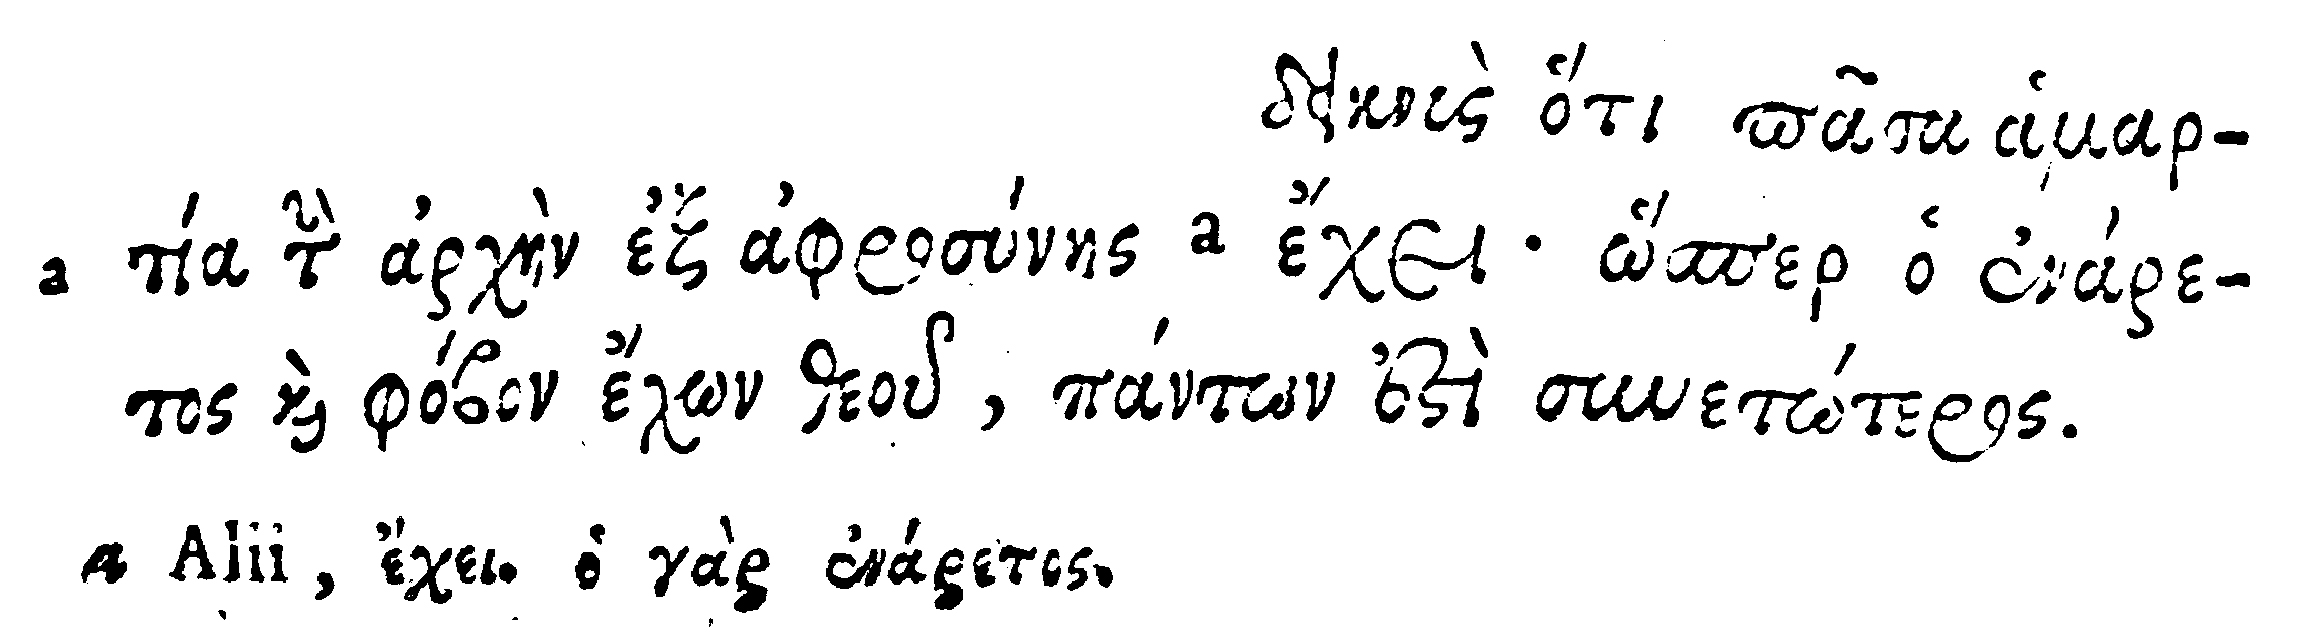 δεικνὺς ὅτι πᾶσα ἁμαρ-
a τία τὴν ἀρχὴν ἐξ ἀφροσύνης a ἔχει · ὥσπερ ὁ ἐνάρε-
τος καὶ φόβον ἔχων θεοῦ, πάντων ἐστὶ συνετώτερος.
a Alii, ἔχει. ὁ γὰρ ἐνάρετος.